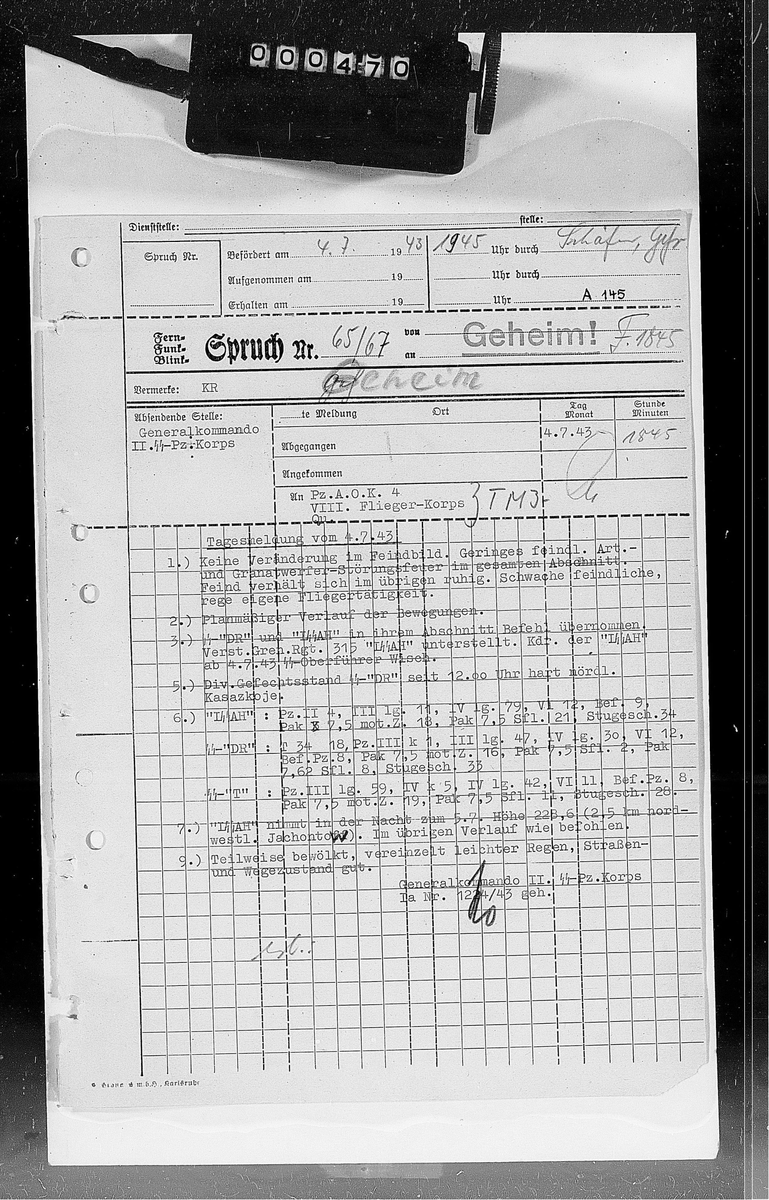 000470
Dienststelle: stelle:
Spruch Nr. Befördert am 4.7. 1943 1945 Uhr durch Schäfer, Gefr.
Aufgenommen am 19 Uhr durch
Erhalten am 19 Uhr A 145
Fern-
Funk-
Blink-
Spruch Nr. 65/67 von
an
Geheim! F. 1845
Vermerke: KR Geheim
Absendende Stelle:
Generalkommando
II.SS-Pz.Korps
te Meldung Ort Tag Monat Stunde Minuten
Abgegangen 4.7.43 1845
Angekommen
An Pz.A.O.K. 4
VIII. Flieger-Korps
Qu.
Tagesmeldung vom 4.7.43
1.) Keine Veränderung im Feindbild. Geringes feindl. Art.-
und Granatwerfer-Störungsfeuer im gesamten Abschnitt.
Feind verhält sich im übrigen ruhig. Schwache feindliche,
rege eigene Fliegertätigkeit.
2.) Planmäßiger Verlauf der Bewegungen.
3.) SS-"DR" und "LSSAH" in ihrem Abschnitt Befehl übernommen.
Verst.Gren.Rgt. 315 "LSSAH" unterstellt. Kdr. der "LSSAH"
ab 4.7.43 SS-Oberführer Wisch.
5.) Div.Gefechtsstand SS-"DR" seit 12.oo Uhr hart nördl.
Kasazkoje.
6.) "LSSAH" : Pz.II 4, III lg. 11, IV lg. 79, VI 12, Bef. 9,
Pak 7,5 mot.Z. 18, Pak 7,5 Sfl. 21, Stugesch.34
SS-"DR" : T 34 18, Pz.III k 1, III lg. 47, IV lg. 3o, VI 12,
Bef.Pz.8, Pak 7,5 mot.Z. 16, Pak 7,5 Sfl. 2, Pak
7,62 Sfl. 8, Stugesch. 33
SS-"T" : Pz.III lg. 59, IV k 5, IV lg. 42, VI 11, Bef.Pz. 8,
Pak 7,5 mot.Z. 19, Pak 7,5 Sfl. 11, Stugesch. 28.
7.) "LSSAH" nimmt in der Nacht zum 5.7. Höhe 228,6 (2,5 km nord-
westl. Jachontow). Im übrigen Verlauf wie befohlen.
9.) Teilweise bewölkt, vereinzelt leichter Regen, Straßen-
und Wegezustand gut.
Generalkommando II. SS-Pz.Korps
Ia Nr. /43 geh.
m.b.H., Karlsruhe